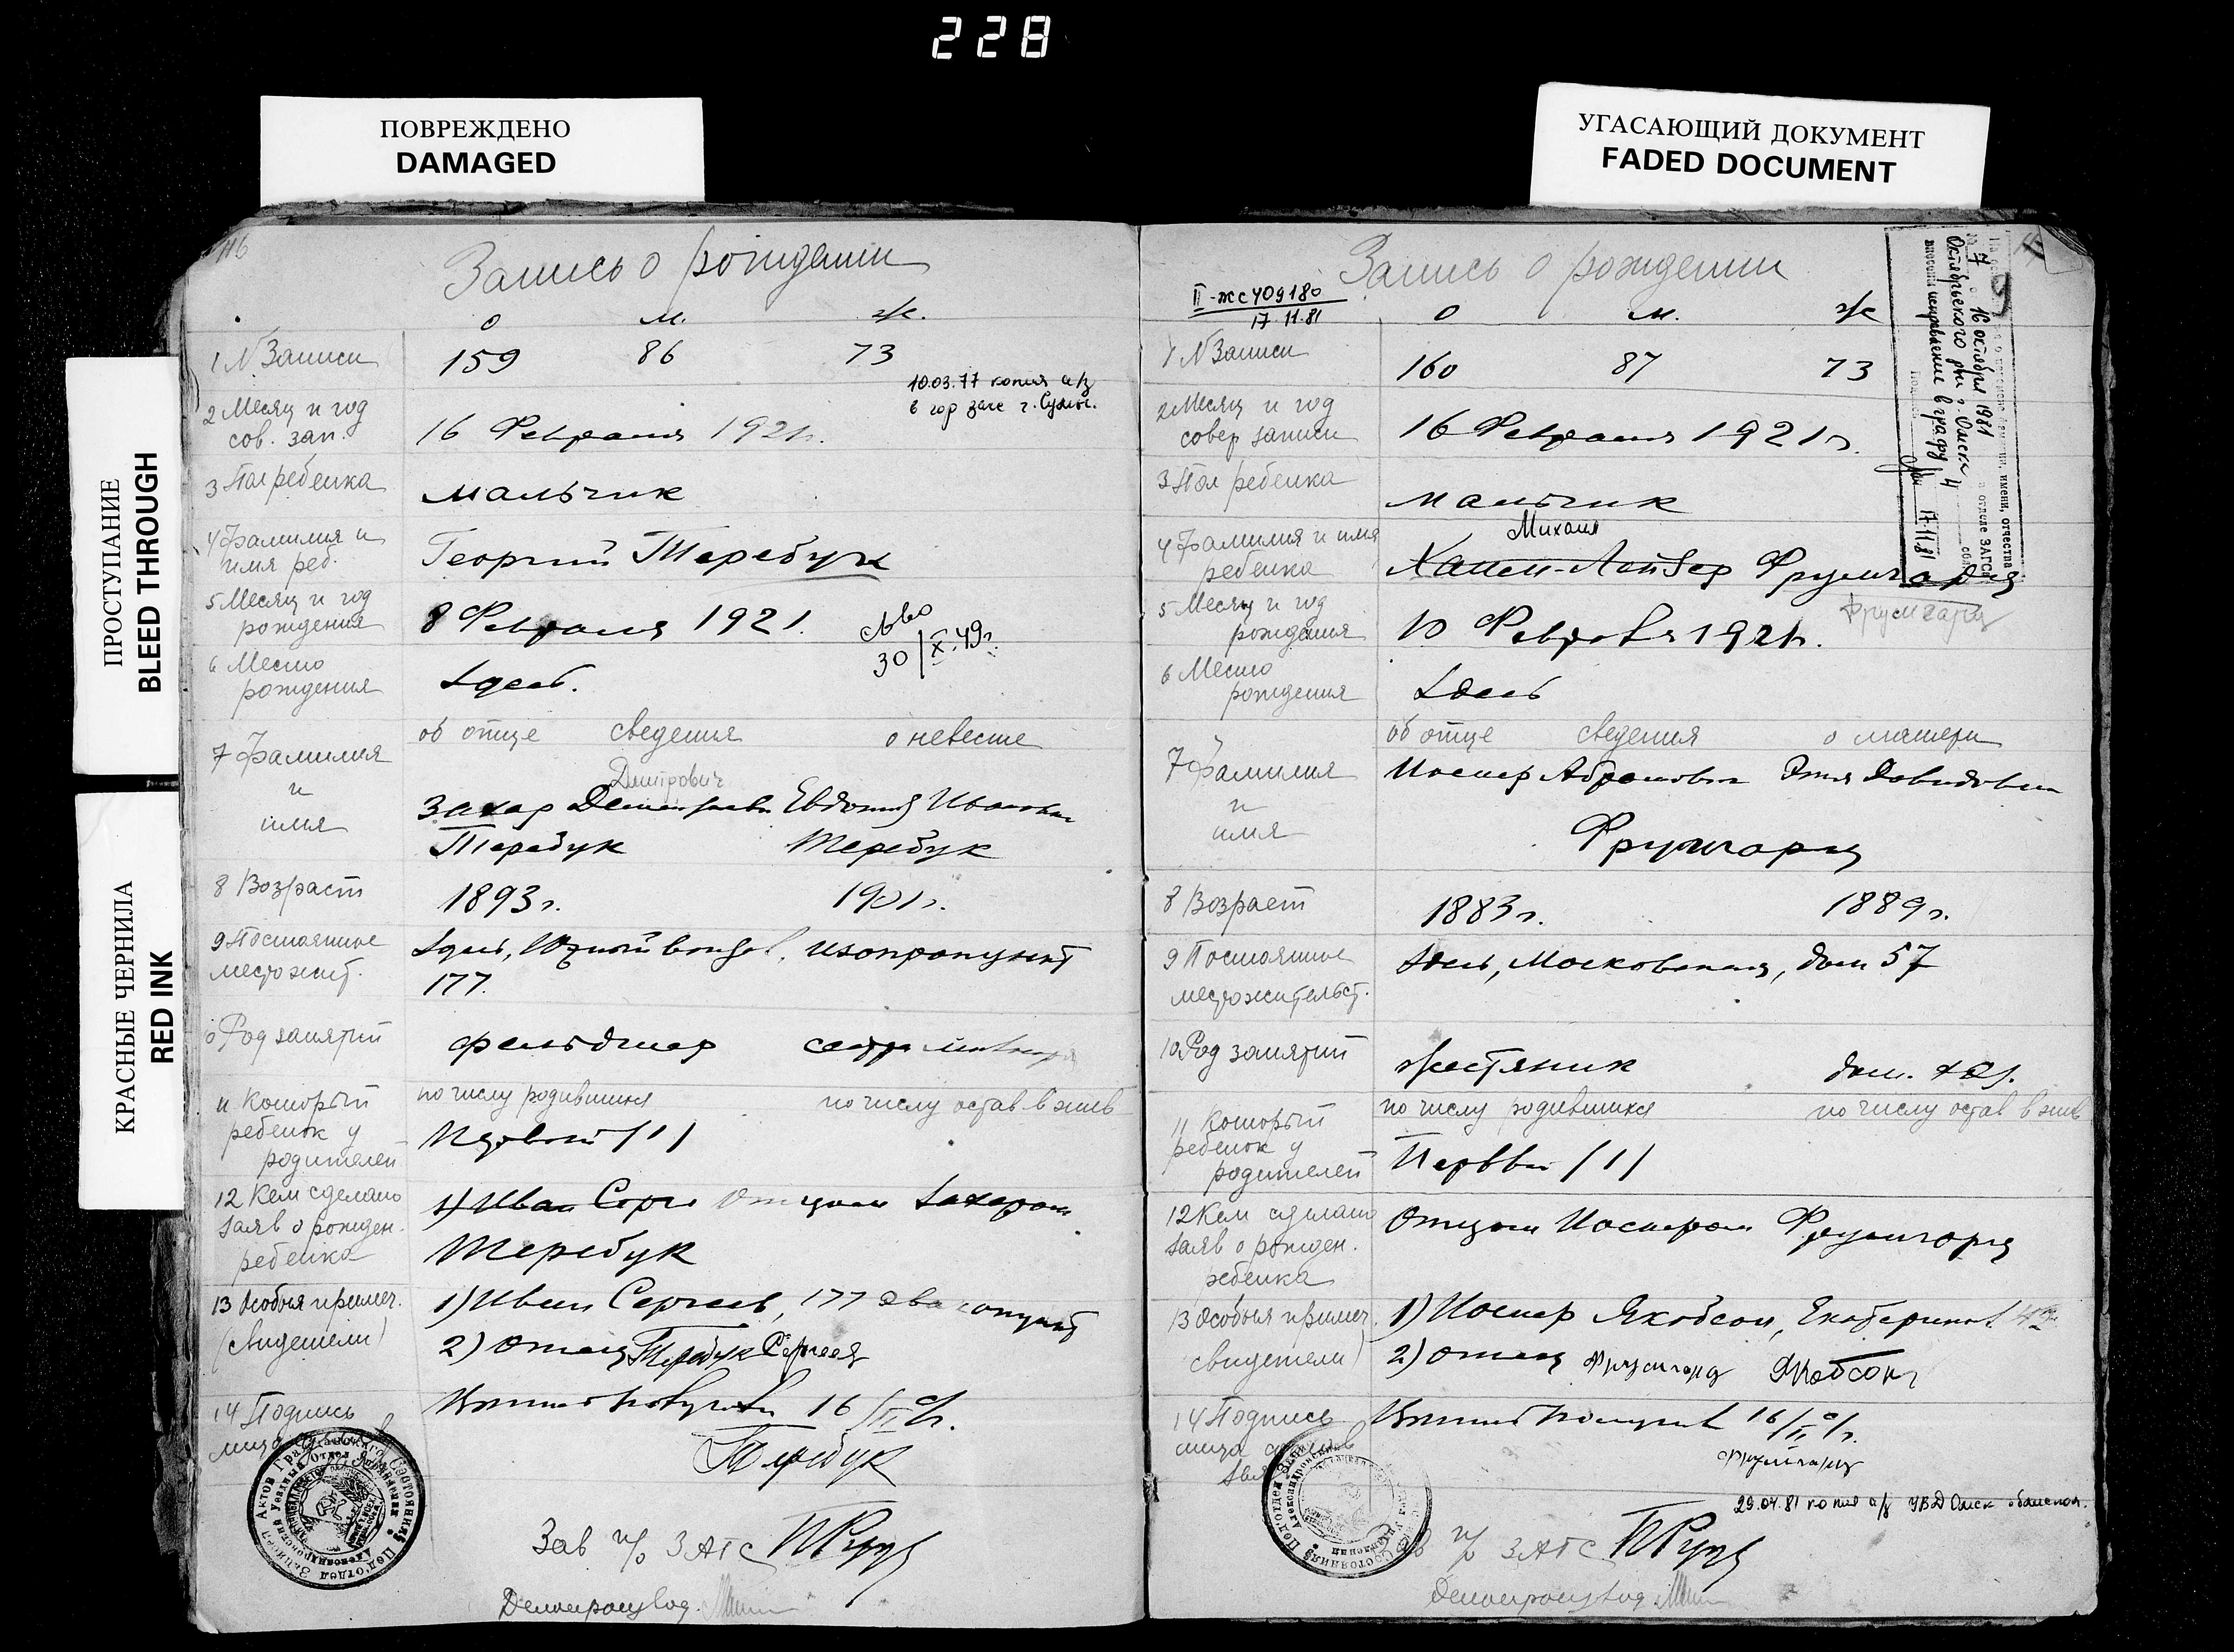 228
ПОВРЕЖДЕНО
DAMAGED
УГАСАЮЩИЙ ДОКУМЕНТ
FADED DOCUMENT
ПРОСТУПАНИЕ
BLEED THROUGH
КРАСНЫЕ ЧЕРНИЛА
RED INK
116
Запись о рождении
о м. ж.
1 N Записи 159 86 73
10.03.77 копия а/з
в гор загс г.
2 Месяц и год
сов. зап. 16 Февраля 1921г.
3 Пол ребенка мальчик
4 Фамилия и
имя реб. Георгий Теребук
5 Месяц и год
рождения 8 Февраля 1921.
св-во
30/X-49г.
6 Место
рождения Здесь.
об отце сведения о невесте
7 Фамилия
и
имя
Дмитрович
Захар Евдокия
Теребук Теребук
8 Возраст 1893г. 1901г.
9 Постоянное
место жит. Здесь, изопропункт
177.
10 Род занятий фельдшер
11 Который
ребенок у
родителей
по числу родившихся по числу остав в жив
Первый /1/
12 Кем сделано
заяв о рожден.
ребенка
1) Иван Серге Отцом Захаром
Теребук
13 Особыя примеч.
(свидетели)
1) Иван Сергеев, 177
2) Отец Теребук Сергеев
14 Подпись
16/II
Теребук
Зав п/о ЗАГС
Делопроизвод.
Запись о рождении
II-жс 409180
17.11.81
о м. ж
1 N Записи 160 87 73
2 Месяц и год
совер записи 16 Февраля 1921г.
3 Пол ребенка мальчик
Михаил
4 Фамилия и имя
ребенка Фрумгарц
Фрумгарц
5 Месяц и год
рождения 10 Февраля 1921г.
6 Место
рождения Здесь
об отце сведения о матери
7 Фамилия
и
имя
Иосиф Абрамович Давидовна
Фрумгарц
8 Возраст 1883г. 1889г.
9 Постоянное
место жительст. Здесь, Московская, дом 57
10 Род занятий Жестяник дом. хоз.
11 Который
ребенок у
родителей
по числу родившихся по числу остав в жив
Первый /1/
12 Кем сделано
заяв о рожден.
ребенка
Отцом Иосифом Фрумгарц
13 Особыя примеч.
свидетели)
1) Иосиф Якобсон,
2) Отец Фрумгарц Якобсон
14 Подпись
16/II
Фрумгарц
29.04.81 копия а/з УВД Омск
п/о ЗАГС
Делопроизвод
7 16 октября 1981
Октябрьского р-на г. Омска
внесены исправление в графу 4
17.11.81